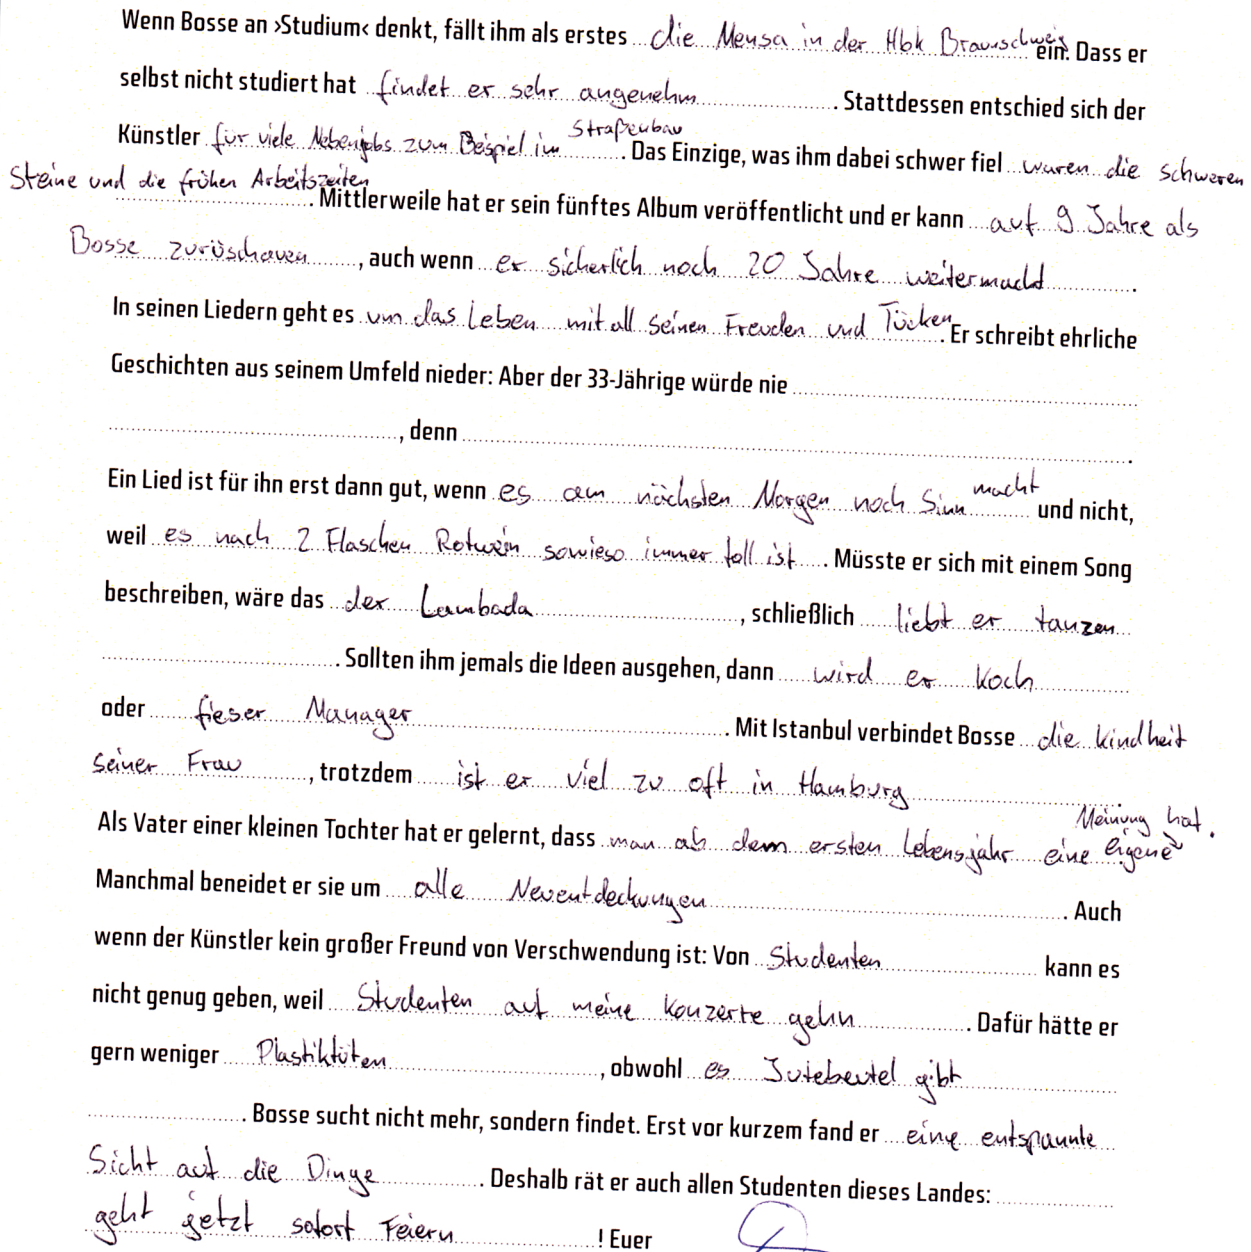 Wenn Bosse an ›Studium‹ denkt, fällt ihm als erstes die Mensa in der Hbk Braunschweig ein. Dass er
selbst nicht studiert hat findet er sehr angenehm. Stattdessen entschied sich der
Künstler für viele Nebenjobs zum Beispiel im Straßenbau. Das Einzige, was ihm dabei schwer fiel waren die schweren
Steine und die frühen Arbeitszeiten. Mittlerweile hat er sein fünftes Album veröffentlicht und er kann auf 9 Jahre als
Bosse zurüschauen, auch wenn er sicherlich noch 20 Jahre weitermacht.
In seinen Liedern geht es um das Leben mit all seinen Freuden und Tücken. Er schreibt ehrliche
Geschichten aus seinem Umfeld nieder: Aber der 33-Jährige würde nie
, denn .
Ein Lied ist für ihn erst dann gut, wenn es am nächsten Morgen noch Sinn macht und nicht,
weil es nach 2 Flaschen Rotwein sowieso immer toll ist. Müsste er sich mit einem Song
beschreiben, wäre das der Lambada, schließlich liebt er tanzen
. Sollten ihm jemals die Ideen ausgehen, dann wird er Koch
oder fieser Manager. Mit Istanbul verbindet Bosse die Kindheit
seiner Frau, trotzdem ist er viel zu oft in Hamburg.
Als Vater einer kleinen Tochter hat er gelernt, dass man ab dem ersten Lebensjahr eine eigene Meinung hat.
Manchmal beneidet er sie um alle Neuentdeckungen. Auch
wenn der Künstler kein großer Freund von Verschwendung ist: Von Studenten kann es
nicht genug geben, weil Studenten auf meine Konzerte gehn. Dafür hätte er
gern weniger Plastiktüten, obwohl es Jutebeutel gibt
. Bosse sucht nicht mehr, sondern findet. Erst vor kurzem fand er eine entspannte
Sicht auf die Dinge. Deshalb rät er auch allen Studenten dieses Landes:
geht jetzt sofort Feiern! Euer